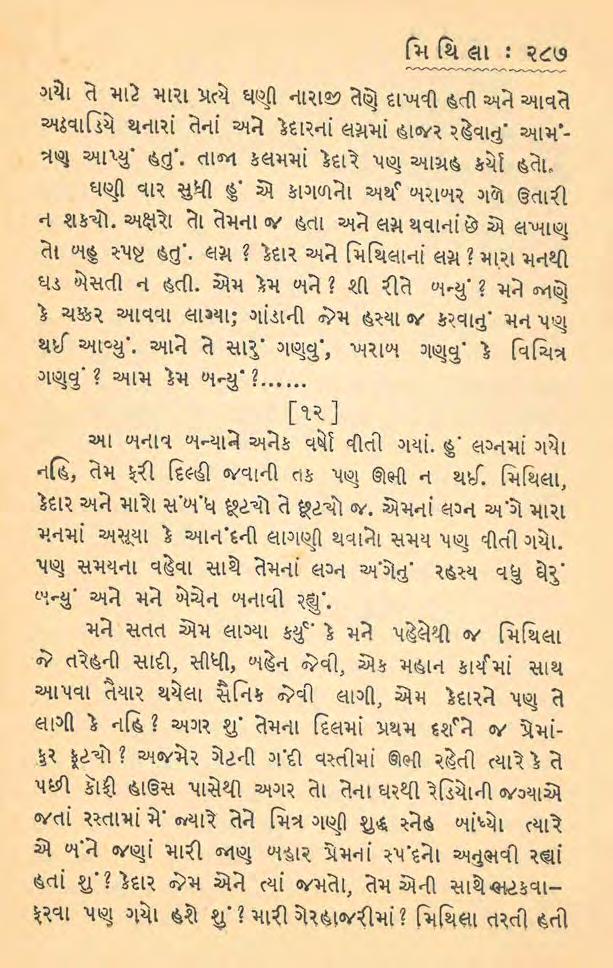 મિથિલા : ૨૮૭
ગયો તે માટે મારા પ્રત્યે ઘણી નારાજી તેણે દાખવી હતી અને આવતે
અઠવાડિયે થનારાં તેનાં અને કેદારનાં લગ્નમાં હાજર રહેવાનું આમં-
ત્રણ આપ્યું હતું. તાજા કલમમાં કેદારે પણ આગ્રહ કર્યો હતો.
ઘણી વાર સુધી હું એ કાગળનો અર્થ બરાબર ગળે ઉતારી
ન શક્યો. અક્ષરો તો તેમના જ હતા અને લગ્ન થવાનાં છે એ લખાણ
તો બહુ સ્પષ્ટ હતું. લગ્ન ? કેદાર અને મિથિલાનાં લગ્ન ? મારા મનથી
ઘડ બેસતી ન હતી. એમ કેમ બને ? શી રીતે બન્યું ? મને જાણે
કે ચક્કર આવવા લાગ્યા; ગાંડાની જેમ હસ્યા જ કરવાનું મન પણ
થઈ આવ્યું. આને તે સારું ગણવું, ખરાબ ગણવું કે વિચિત્ર
ગણવું ? આમ કેમ બન્યું ?......
[૧૨]
આ બનાવ બન્યાને અનેક વર્ષો વીતી ગયાં. હું લગ્નમાં ગયો
નહિ, તેમ ફરી દિલ્હી જવાની તક પણ ઊભી ન થઈ. મિથિલા,
કેદાર અને મારો સંબંધ છૂટ્યો તે છૂટ્યો જ. એમનાં લગ્ન અંગે મારા
મનમાં અસૂયા કે આનંદની લાગણી થવાનો સમય પણ વીતી ગયો.
પણ સમયના વહેવા સાથે તેમનાં લગ્ન અંગેનું રહસ્ય વધુ ઘેરું
બન્યું અને મને બેચેન બનાવી રહ્યું.
મને સતત એમ લાગ્યા કર્યું કે મને પહેલેથી જ મિથિલા
જે તરેહની સાદી, સીધી, બહેન જેવી, એક મહાન કાર્યમાં સાથ
આપવા તૈયાર થયેલા સૈનિક જેવી લાગી, એમ કેદારને પણ તે
લાગી કે નહિ ? અગર શું તેમના દિલમાં પ્રથમ દર્શને જ પ્રેમાં-
કુર ફૂટ્યો ? અજમેર ગેટની ગંદી વસ્તીમાં ઊભી રહેતી ત્યારે કે તે
પછી કૉફી હાઉસ પાસેથી અગર તો તેના ઘરથી રેડિયોની જગ્યાએ
જતાં રસ્તામાં મેં જ્યારે તેને મિત્ર ગણી શુદ્ધ સ્નેહ બાંધ્યો ત્યારે
એ બંને જણાં મારી જાણ બહાર પ્રેમનાં સ્પંદનો અનુભવી રહ્યાં
હતાં શું ? કેદાર જેમ એને ત્યાં જમતો, તેમ એની સાથે ભટકવા–
ફરવા પણ ગયો હશે શું ? મારી ગેરહાજરીમાં ? મિથિલા તરતી હતી